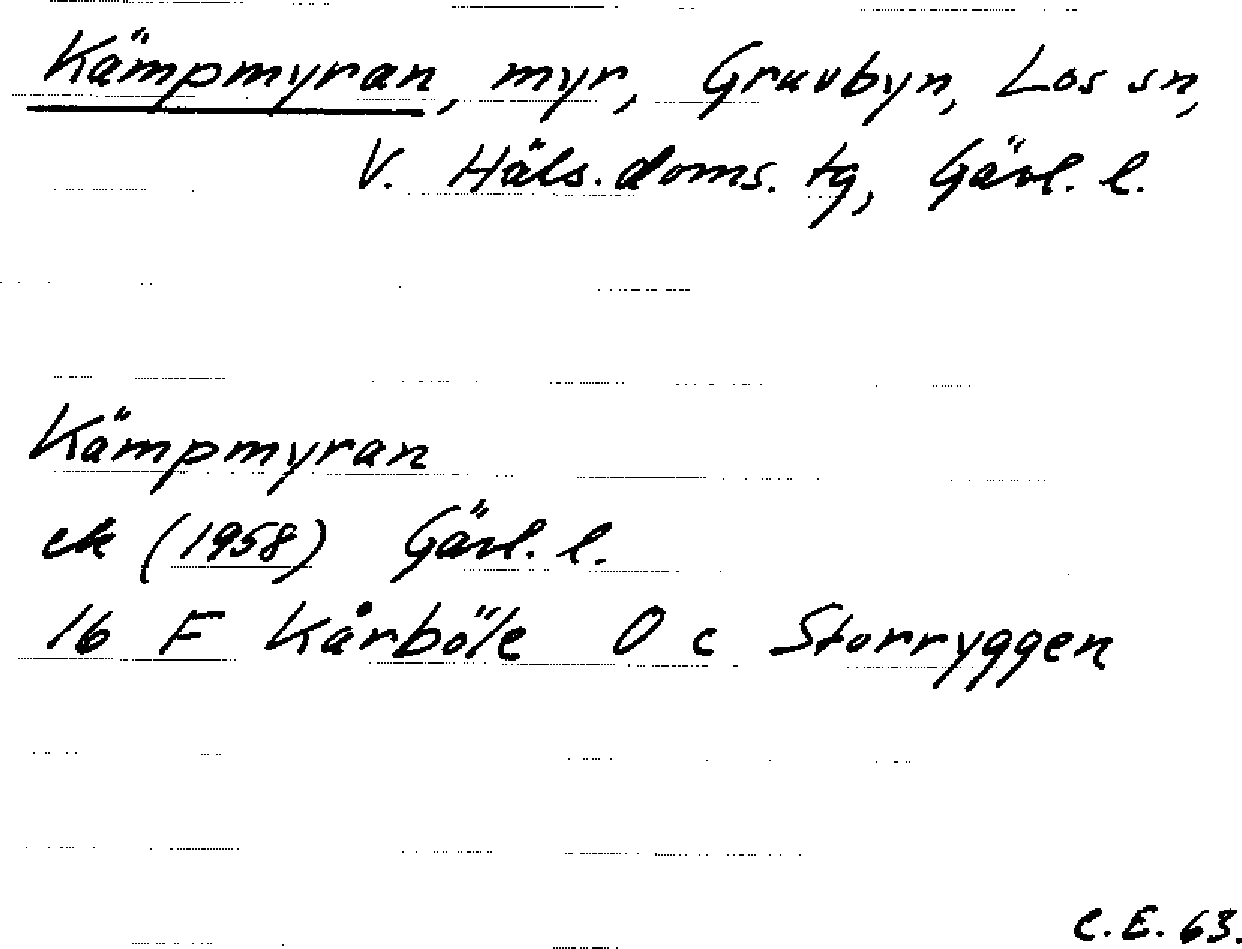 Kämpmyran, myr, Gruvbyn, Los sn,
V. Häls. doms. tg, Gävl. l.
Kämpmyran
ek (1958) Gävl. l.
16 F Kårböle O c Storryggen
C.E. 63.